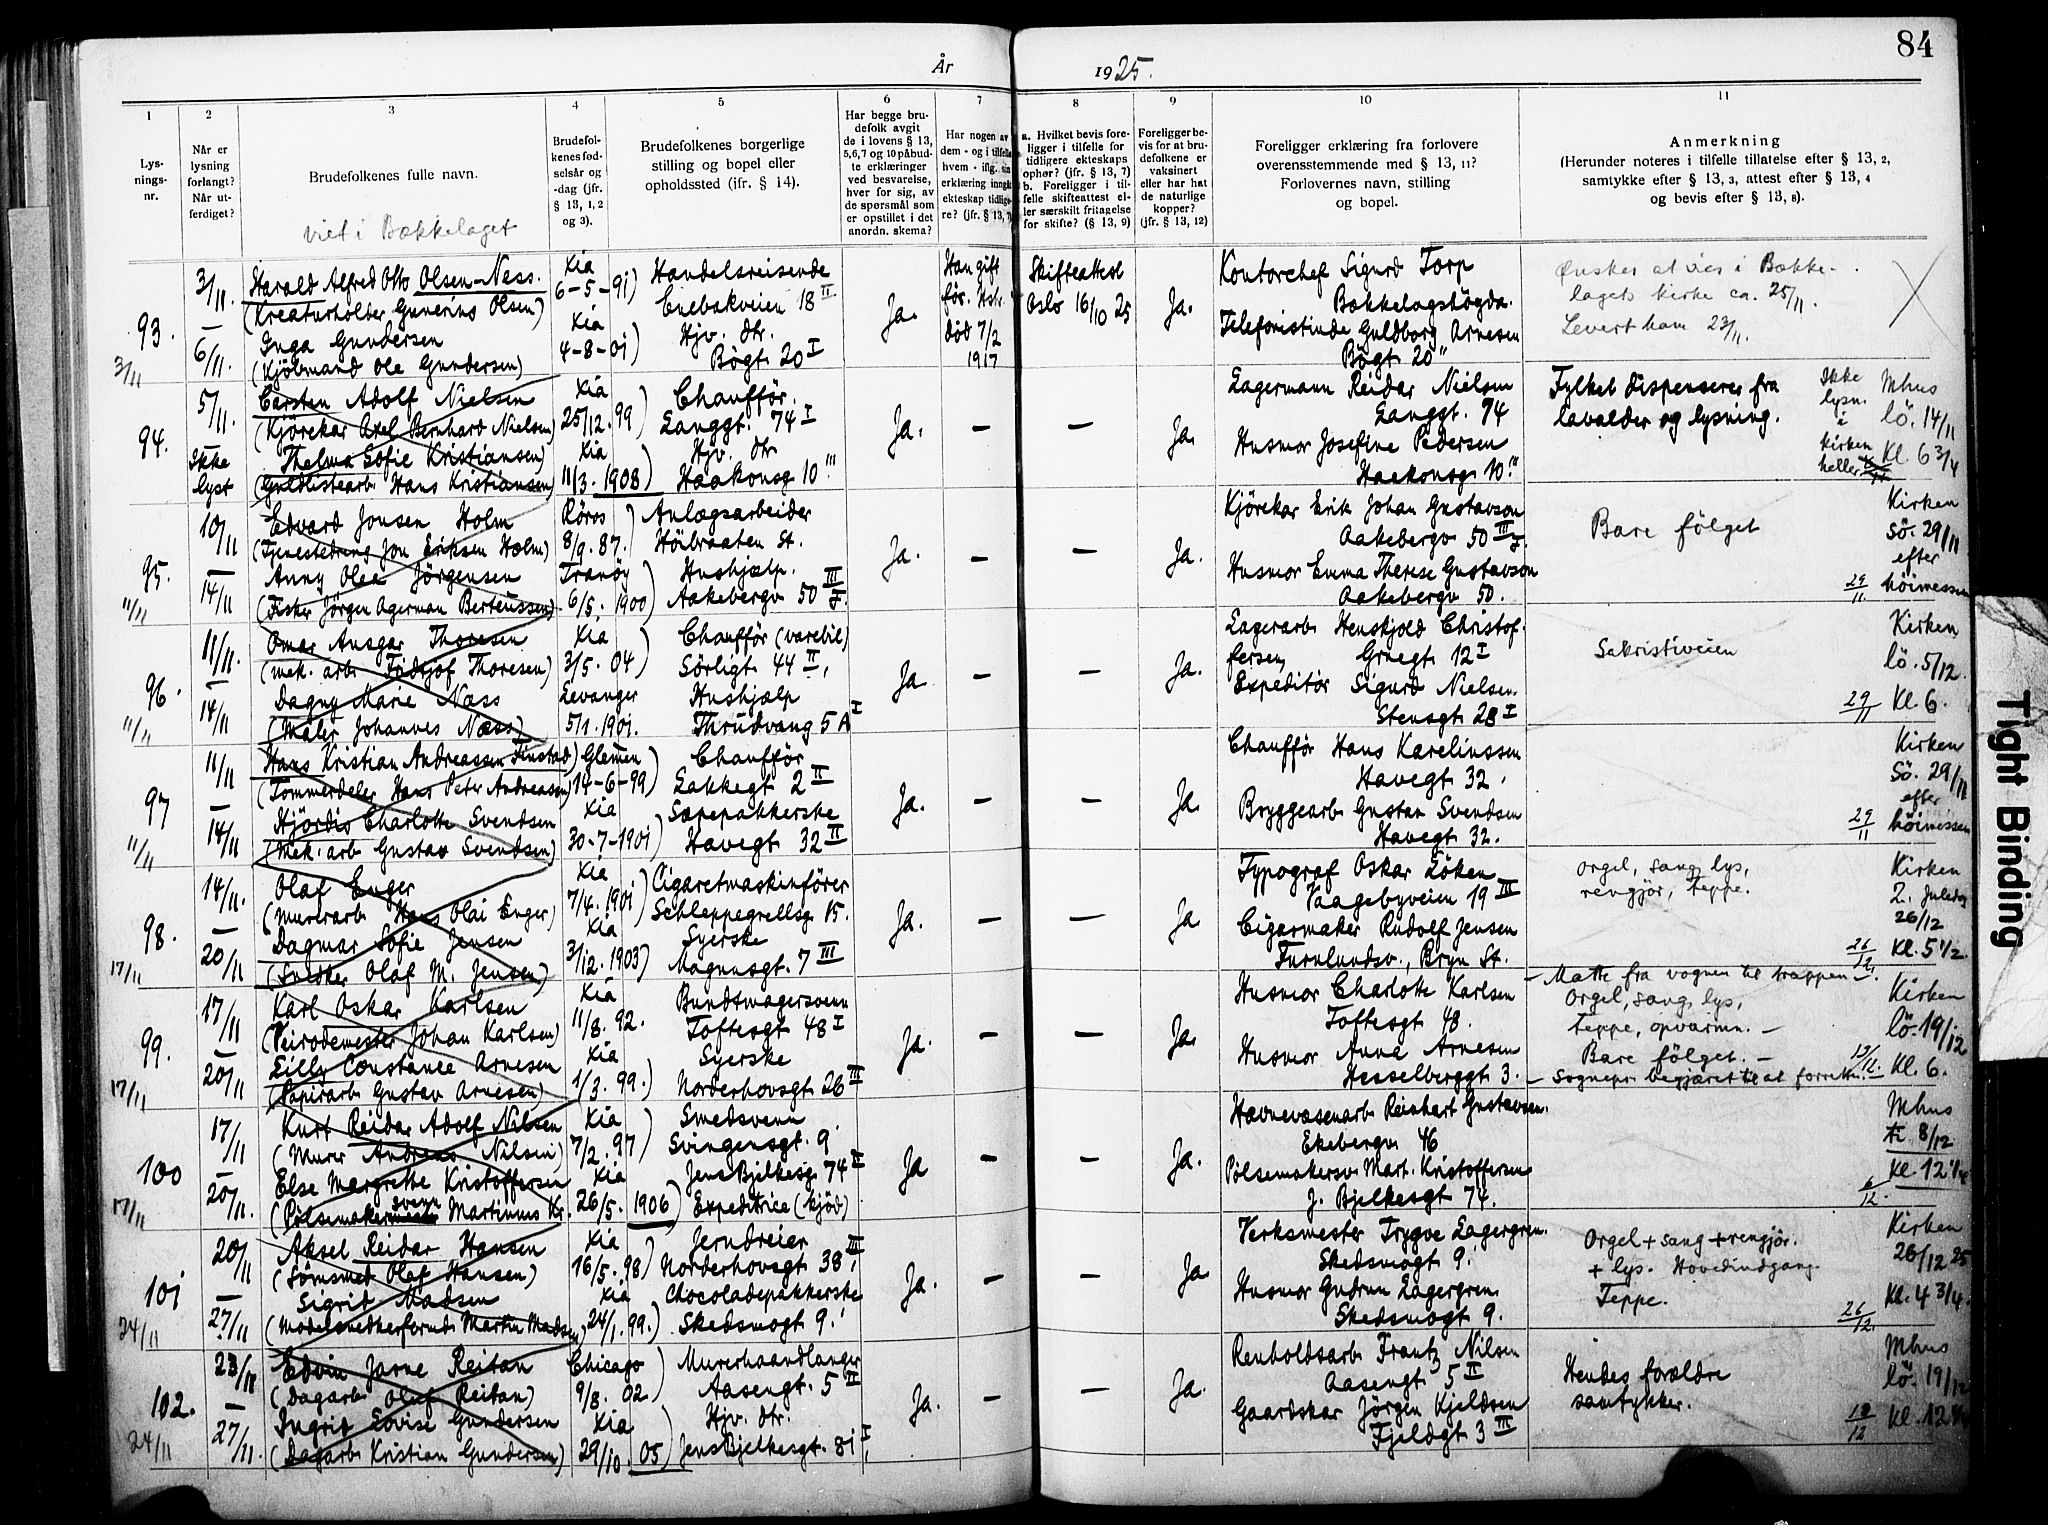 84
År 1925.
1 2 3 4 5 6 7 8 9 10 11
Lys-
nings-
nr.
Når er
lysning
forlangt?
Når ut-
ferdiget?
Brudefolkenes fulle navn.
viet i Bækkelaget
Brudefol-
kenes fød-
selsår og
-dag (jfr.
§ 13, 1, 2
og 3).
Brudefolkenes borgerlige
stilling og bopel eller
opholdssted (jfr. § 14).
Har begge bru-
defolk avgit
de i lovens § 13,
5,6,7 og 10 påbud-
te erklæringer
ved besvarelse,
hver for sig, av
de spørsmål som
er opstillet i det
anordn. skema?
Har nogen av
dem - og i tilfelle
hvem - iflg. sin
erklæring inngå
ekteskap tidlige-
re? (jfr. § 13, 7)
a. Hvilket bevis fore-
ligger i tilfelle for
tidligere ekteskaps
ophør? (jfr. § 13, 7)
b. Foreligger i til-
felle skifteattest el-
ler særskilt fritagelse
for skifte? (jfr. § 13, 9)
Foreligger be-
vis for at bru-
defolkene er
vaksinert
eller har hat
de naturlige
kopper?
(jfr. § 13, 12)
Foreligger erklæring fra forlovere
overensstemmende med § 13, 11?
Forlovernes navn, stilling
og bopel.
Anmerkning
(Herunder noteres i tilfelle tillatelse efter § 13, 2,
samtykke efter § 13, 3, attest efter § 13, 4
og bevis efter § 13, 8).
93.
3/11
3/11.
–
6/11.
Harald Alfred Otto Olsen-Ness.
(Kreaturholder Gunerius Olsen)
Inga Gundersen
(Kjöbmand Ole Gundersen)
Xia
6-5-91)
Xia
4-8-01)
Handelsreisende
Enebakveien 18 II
Hjv. dtr.
Bögt 20 I
Ja.
Han gift
för. Hstr.
död 7/2
1917
Skifteattest
Oslo 16/10 25
Ja.
Kontorchef Sigurd Torp
Bækkelagshögda.
Telefonistinde Guldborg Arnesen
Bögt 20"
Önsker at vies i Bække-
lagets kirke ca. 25/11.
Levert ham 23/11.
94.
5/11.
Ikke
lyst
Carsten Adolf Nielsen
(Kjörekar Axel Bernhard Nielsen)
Thelma Sofie Kristiansen)
(Guldlistearb. Hans Kristiansen)
Xia
25/12. 99)
Xia
11/3. 1908)
Chaufför.
Langgt. 74 I
Hjv. dtr
Haakonsg 10 III
Ja. – – Ja.
Lagermann Reidar Nielsen
Langgt. 74
Husmor Josefine Pedersen
Haakonsg 10."
Fylket dispenserer fra
lavalder og lysning.
Ikke
lysn.
i
kirken
heller
Mhus
lö. 14/11
Kl. 6 3/4
95.
11/11
10/11
–
14/11
Edvard Jonsen Holm
(Tjenestedreng Jon Eriksen Holm)
Anny Olea Jörgensen
(Fisker Jörgen Agerman Berteussen)
Röros
8/9. 87.)
Tranöy
6/5. 1900)
Anlægsarbeider
Höibraaten St.
Hushjælp.
Aakebergv 50 III F.
Ja. – – Ja.
Kjörekar Erik Johan Gustavson
Aakebergv 50 III F.
Husmor Emma Therese Gustavson
Aakebergv 50.
Bare fölget
29/11
Kirken
sö. 29/11
efter
höimessen
96.
11/11
11/11.
–
14/11
Omar Ansgar Thoresen
(mek. arb. Fridtjof Thoresen)
Dagny Marie Næss
(Maler Johannes Næss)
Xia
3/5. 04)
Levanger
5/1. 1901.
Chaufför (varebil)
Sörligt 44 II,
Hushjælp
Thrudvang 5 A I
Ja – – Ja.
Lagerarb Henskjold Christof-
fersen, Grnegt 12 I
Expeditör Sigurd Nielsen.
Stensgt 28 I
Sakristiveien
29/11
Kirken
lö. 5/12.
Kl. 6.
97
11/11
11/11
–
14/11
Hans Kristian Andreassen Finstad)
(Tømmerdeler Hans Peter Andreasen)
Hjördis Charlotte Svendsen
(Mek. arb Gustav Svendsen)
Glemen
14-6-99)
Xia
30-7-1901)
Chaufför
Lakkegt 2 II
Sæpepakkerske
Havegt 32 II
Ja. – – Ja.
Chaufför Hans Karelinssen
Havegt 32.
Bryggearb Gustav Svendsen
Havegt 32.
29/11
Kirken
Sö. 29/11
efter
höimessen
98.
17/11
14/11.
–
20/11
Olaf Enger
(Murerarb Hans Olai Enger)
Dagmar Sofie Jensen
(Snedker Olaf M. Jensen)
Xia
7/4. 1901)
Xia
3/12. 1903)
Cigaretmaskinförer
Schleppegrellsg 15.
Syerske
Magnusgt. 7 III
Ja. – – Ja
Typograf Oskar Löken
Vaagebyveien 19 III
Cigarmaker Rudolf Jensen
Furulundsv., Bryn St.
orgel, sang, lys,
rengjør, teppe.
26/12.
Kirken
2. Juledag
26/12
Kl. 5 1/2
99.
17/11
17/11
–
20/11
Karl Oskar Karlsen
(Veirodemester Johan Karlsen)
Lilly Constance Arnesen
(Papirarb Gustav Arnesen)
Xia
11/8. 92.
Xia
1/3. 99.)
Bundtmagersvenn
Toftesgt 48 I
Syerske
Norderhovsgt 26 III
Ja. – – Ja.
Husmor Charlotte Karlsen
Toftesgt 48.
Husmor Anna Arnesen
Hesselberggt 3.
– Matte fra vognen til trappen –
Orgel, sang, lys,
teppe, opvarmn. –
Bare fölget. –
– Sognepr. begjæret til at forrette.
13/12.
Kirken
lö. 19/12
Kl. 6.
100
17/11
17/11
–
20/11.
Kurt Reidar Adolf Nilsen
(Murer Andreas Nilsen)
Else Margrethe Kristoffersen
(Pölsemakersvenn Martinius Kr.
Xia
7/2. 97)
Xia
26/5. 1906)
Smedsvenn
Svingensgt. 9
Jens Bjelkesg 74 II
Expeditrice (kjöd)
Ja – – Ja.
Havnevæsenarb Reinhart Gustavsen.
Ekebergv 46
Pölsemakersv Mart. Kristoffersen
J. Bjelkesgt 74.
6/12.
Mhus
ti 8/12
Kl. 12 1/4
101
24/11
20/11
–
27/11
Aksel Reidar Hansen
(Sömsmed Olaf Hansen)
Sigrid Madsen
(Modelsnedkerformd. Martin Madsen)
Xia
16/5. 98)
Xia
24/1. 99.)
Jerndreier
Norderhovsgt 38 III,
Chocoladepakkerske
Skedsmogt 9.
Ja. – – Ja
Verksmester Trygve Lagergren.
Skedsmogt 9.
Husmor Gudrun Lagergren
Skedsmogt 9.
Orgel + sang + rengjör.
+ lys. Hovedindgang.
Teppe.
26/12.
Kirken
26/12 25
Kl. 4 3/4.
102.
24/11
23/11
–
27/11.
Edvin Jarne Reitan
(Dagarb Oluf Reitan)
Ingrid Lovise Gundersen
(Dagarb Kristian Gundersen)
Chicago
9/8. 02)
Xia
29/10. 05)
Murerhaandlanger
Aasengt. 5 II
Hjv. dtr.
Jens Bjelkesgt. 81 I,
Ja. – – Ja.
Renholdsarb Frantz Nilsen
Aasengt 5 II
Gaardskar Jörgen Kjeldsen
Fjeldgt 3 III
Hendes forældre
samtykker.
12/12
Mhus
lö. 19/12
Kl. 12 1/4
Tight Binding